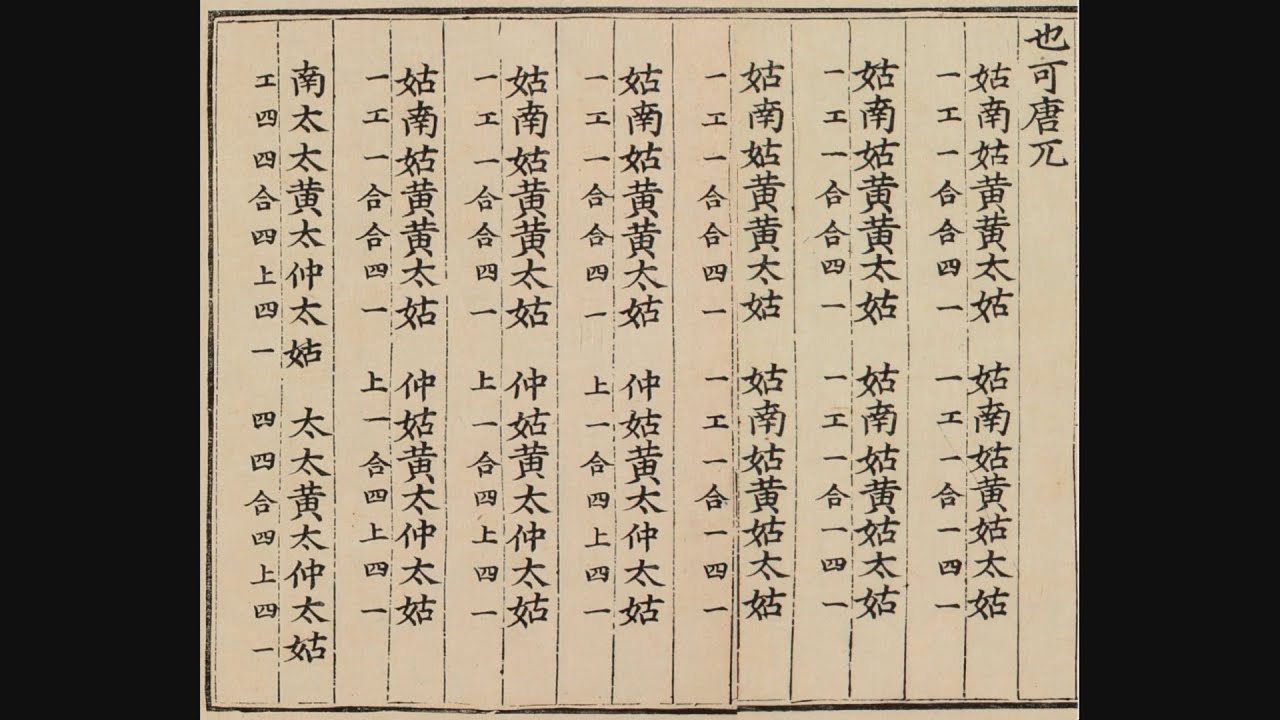 也可唐兀
姑南姑黄黄太姑 姑南姑黄姑太姑
一工一合合四一 一工一合一四一
姑南姑黄黄太姑 姑南姑黄姑太姑
一工一合合四一 一工一合一四一
姑南姑黄黄太姑 姑南姑黄姑太姑
一工一合合四一 一工一合一四一
姑南姑黄黄太姑 仲姑黄太仲太姑
一工一合合四一 上一合四上四一
姑南姑黄黄太姑 仲姑黄太仲太姑
一工一合合四一 上一合四上四一
姑南姑黄黄太姑 仲姑黄太仲太姑
一工一合合四一 上一合四上四一
南太太黄太仲太姑 太太黄太仲太姑
工四四合四上四一 四四合四上四一